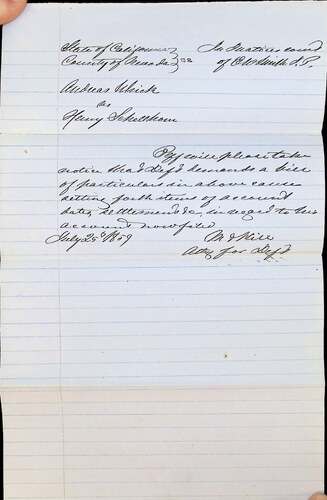 State of California } ss In Justices court
County of Nevada } of C W Smith J.P.
Andreas Weick
vs
Henry Schellhorn
Plff will please take
notice that Deft demands a bill
of particulars in above cause
setting forth items of account
dates, settlements &c, in regard to his
account now filed
July 25th 1859
Atty for Deft